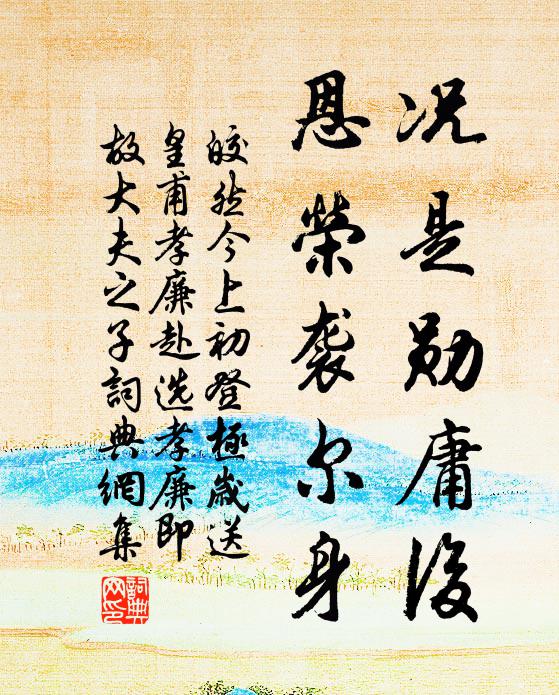 况是勋庸後
恩榮袭尔身
皎然今上初登極歲送
皇甫孝廉赴选孝廉即
故大夫之子詞典網集
詞典
网印